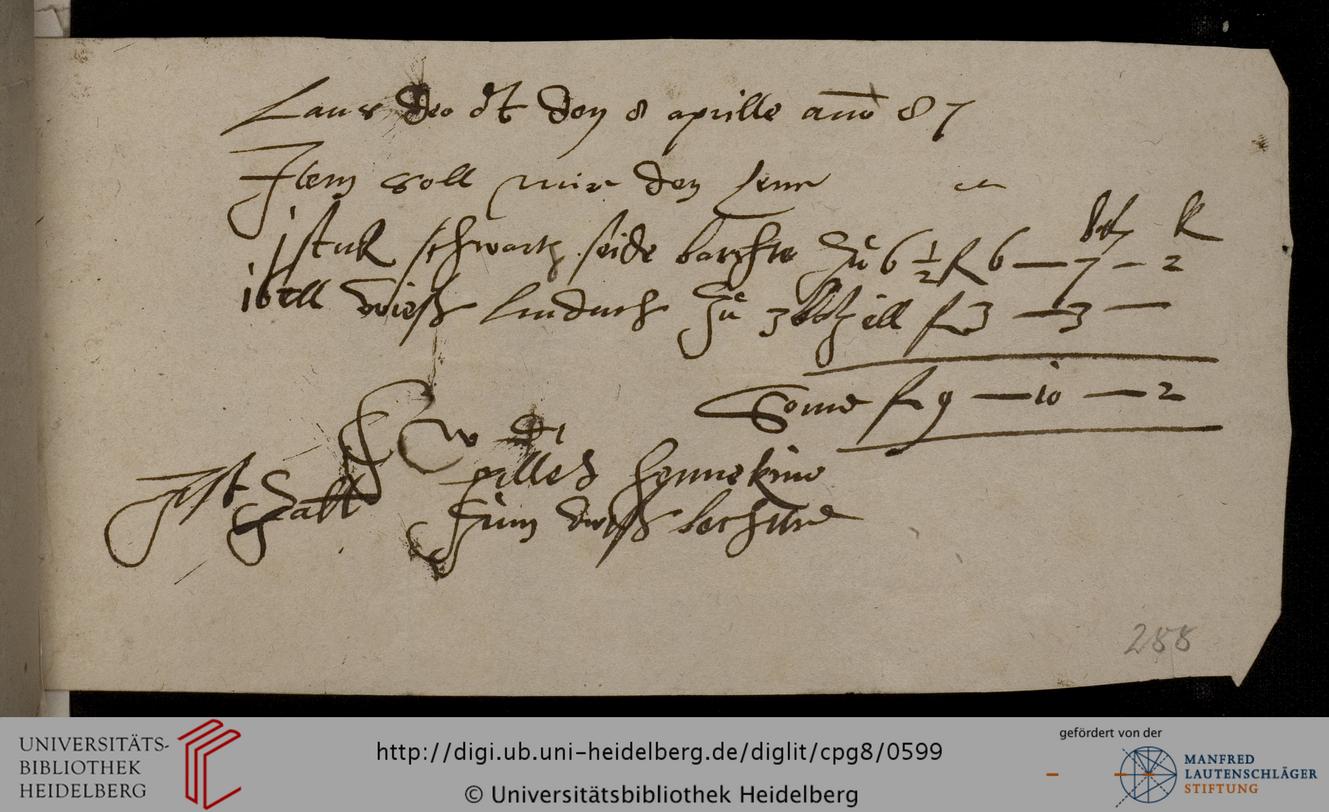 Laus deo dt den 8 aprille ann̄o 87
Item soll mir den
1 stuk schwartz seide barchte zue 6 ½ fl 6 — 7 — 2
16 ell wiess zue 3 btz ell fl 3 — 3 —
Some fl 9 — 10 — 2
E W
gilles hennekinn
Ist zalt
288
UNIVERSITÄTS-
BIBLIOTHEK
HEIDELBERG
http://digi.ub.uni-heidelberg.de/diglit/cpg8/0599
© Universitätsbibliothek Heidelberg
gefördert von der
MANFRED
LAUTENSCHLÄGER
STIFTUNG